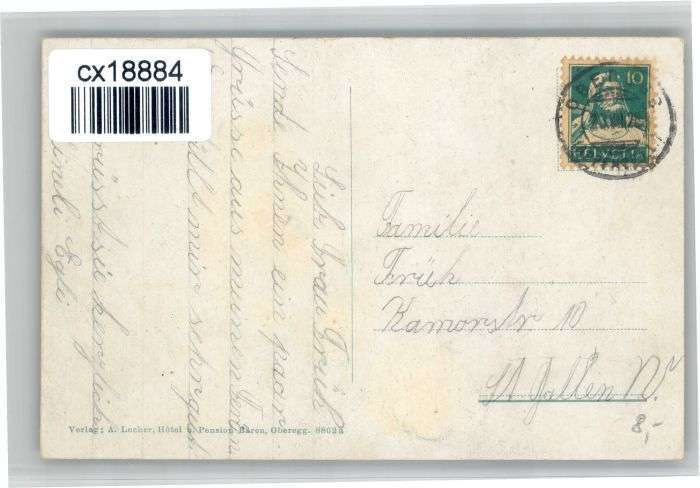 cx18884
10
HELVETIA
Lieb Frau Früh
Sende Ihnen ein paar
Grüsse aus meinen Ferien
Gefällt mir sehr gut
Grüsst Sie herzlich
Lineli Egli
Familie
Früh
Kamorstr 10
St Gallen W.
8,-
Verlag: A. Locher, Hôtel u. Pension Bären, Oberegg. 88023